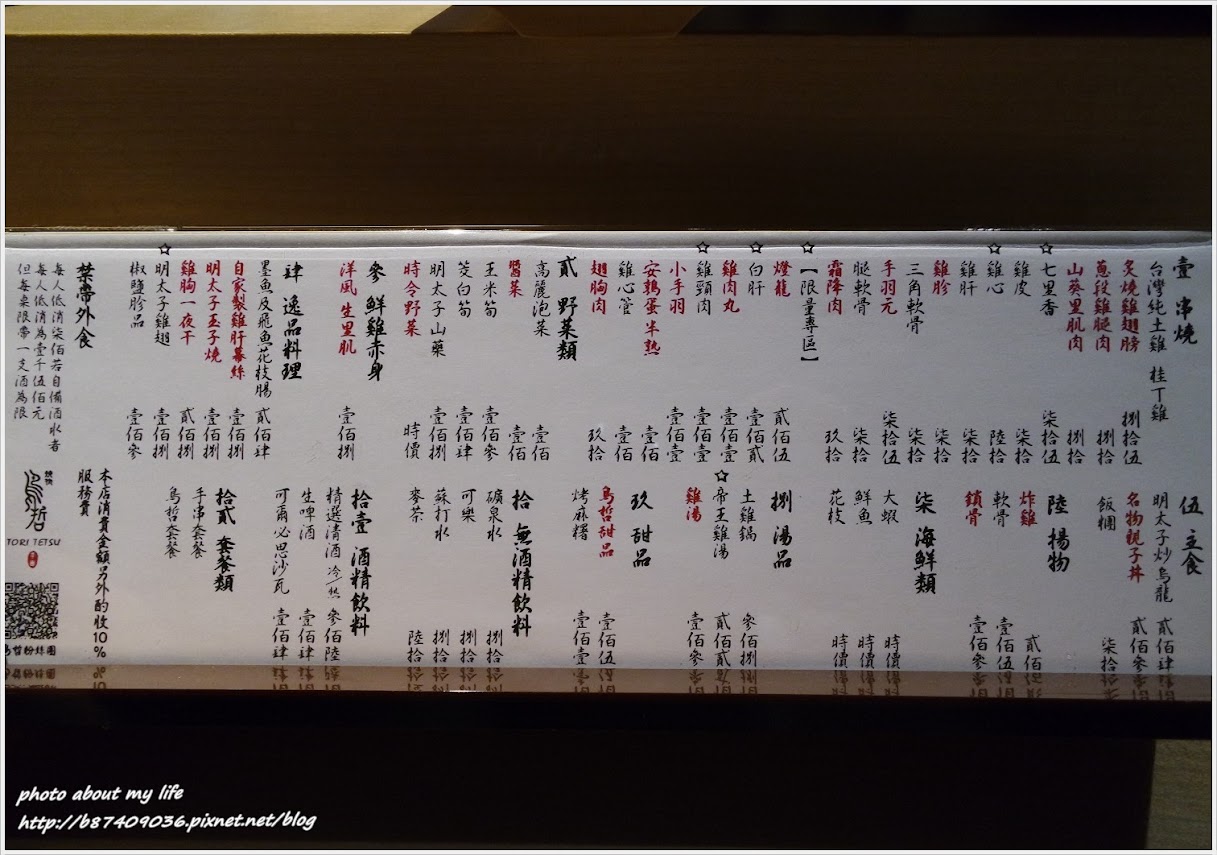 壹 串燒
台灣純土雞 桂丁雞
炙燒雞翅膀 捌拾伍
蔥段雞腿肉 捌拾
山葵里肌肉 捌拾
☆七里香 柒拾伍
雞皮 柒拾
☆雞心 陸拾
雞肝 柒拾
雞胗 柒拾
三角軟骨 柒拾
手羽元 柒拾伍
腿軟骨 柒拾
霜降肉 玖拾
☆【限量專區】
燈籠 貳佰伍
☆白肝 壹佰貳
雞肉丸 壹佰壹
☆雞頸肉 壹佰壹
小手羽 壹佰壹
安鶉蛋半熟 壹佰
雞心管 壹佰
翅胸肉 玖拾
貳 野菜類
高麗泡菜 壹佰
醬菜 壹佰
玉米筍 壹佰參
茭白筍 壹佰肆
明太子山藥 壹佰捌
時令野菜 時價
參 鮮雞赤身
洋風 生里肌 壹佰捌
肆 逸品料理
墨魚及飛魚花枝腸 貳佰肆
自家製雞肝幕絲 壹佰捌
明太子玉子燒 壹佰捌
雞胸一夜干 貳佰捌
☆明太子雞翅 壹佰捌
椒鹽胗品 壹佰參
禁帶外食
每人低消柒佰若自備酒水者
每人低消為壹千伍佰元
但每桌限帶一支酒為限
伍 主食
明太子炒烏龍 貳佰肆
名物親子丼 貳佰參
飯糰 柒拾
陸 揚物
炸雞 貳佰
軟骨 壹佰伍
鎖骨 壹佰參
柒 海鮮類
大蝦 時價
鮮魚 時價
花枝 時價
捌 湯品
土雞鍋 參佰捌
☆帝王雞湯 貳佰貳
雞湯 壹佰參
玖 甜品
鳥哲甜品 壹佰伍
烤麻糬 壹佰壹
拾 無酒精飲料
礦泉水 捌拾
可樂 捌拾
蘇打水 捌拾
麥茶 陸拾
拾壹 酒精飲料
精選清酒 冷/熱 參佰陸
生啤酒 壹佰肆
可爾必思沙瓦 壹佰肆
拾貳 套餐類
手串套餐
鳥哲套餐
本店消費金額另外酌收10%
服務費
燒鳥
鳥哲
TORI TETSU
鳥哲粉絲團
photo about my life
http://b87409036.pixnet.net/blog